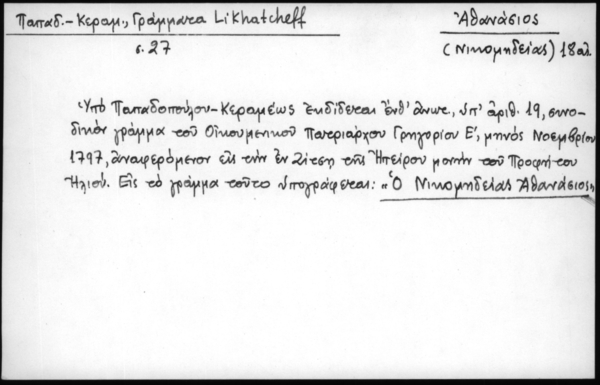 Παπαδ.-Κεραμ., Γράμματα Likhatcheff
Ἀθανάσιος
σ. 27
(Νικομηδείας) 18 αἰ.
Ὑπό Παπαδοπούλου-Κεραμέως ἐκδίδεται ἐνθ' ἄνωτ., ὑπ' ἀριθ. 19, συνο-
δικόν γράμμα τοῦ Οἰκουμενικοῦ Πατριάρχου Γρηγορίου Ε', μηνός Νοεμβρίου
1797, ἀναφερόμενον εἰς τήν ἐν Ζίτσῃ τῆς Ἠπείρου μονήν τοῦ Προφήτου
Ἠλιού. Εἰς τό γράμμα τοῦτο ὑπογράφεται: «Ὁ Νικομηδείας Ἀθανάσιος»